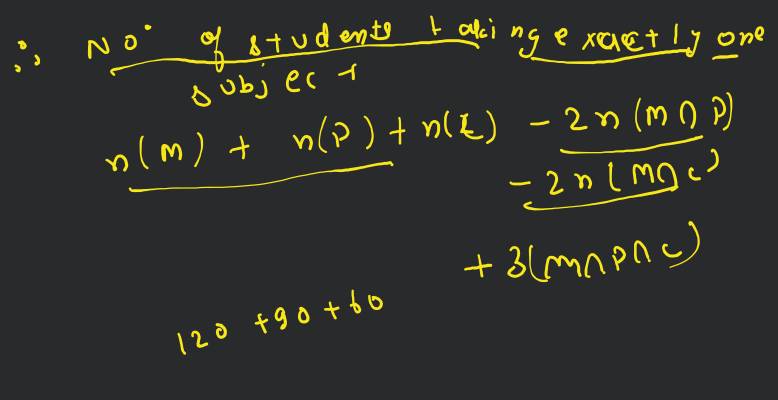 ∴ No. of students taking exactly one
subject
n(M) + n(P) + n(C) - 2n(M∩P)
- 2n(M∩C)
+ 3(M∩P∩C)
120 + 90 + 60